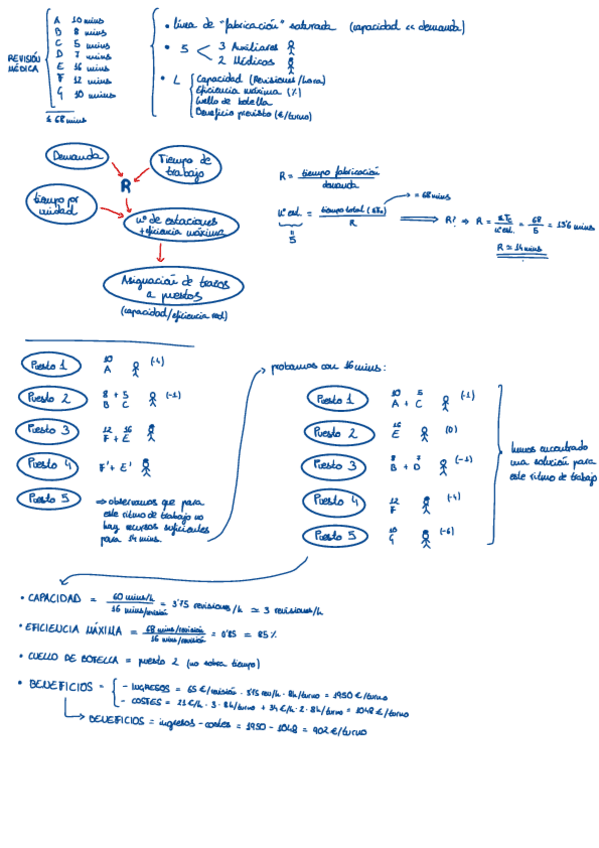 REVISIÓN MÉDICA
A 10 mins
B 8 mins
C 5 mins
D 7 mins
E 16 mins
F 12 mins
G 10 mins
Σ 68 mins
• línea de "fabricación" saturada (capacidad << demanda)
• 5 < 3 Auxiliares
2 Médicos
• ¿ Capacidad (Revisiones/hora)
Eficiencia máxima (%)
Cuello de botella
Beneficio previsto (€/turno)
Demanda
Tiempo de trabajo
R
tiempo por unidad
nº de estaciones + eficiencia máxima
Asignación de tareas a puestos
(capacidad/eficiencia real)
R = tiempo fabricación / demanda
nº est. = tiempo total / R
= 68 mins
5
⇒ R? ⇒ R = / nº est. = 68 / 5 = 13'6 mins
R ≃ 14 mins
Puesto 1 10 A (-4)
Puesto 2 8 + 5 B C (-1)
Puesto 3 12 16 F + E
Puesto 4 F' + E'
Puesto 5 ⇒ observamos que para
este ritmo de trabajo no
hay recursos suficientes
para 14 mins.
probamos con 16 mins:
Puesto 1 10 5 A + C (-1)
Puesto 2 16 E (0)
Puesto 3 8 7 B + D (-1)
Puesto 4 12 F (-4)
Puesto 5 10 G (-6)
hemos encontrado
una solución para
este ritmo de trabajo
• CAPACIDAD = 60 mins/h / 16 mins/revisión = 3'75 revisiones/h ≃ 3 revisiones/h
• EFICIENCIA MÁXIMA = 68 mins/revisión / 16 mins/revisión = 0'85 = 85%
• CUELLO DE BOTELLA = puesto 2 (no sobra tiempo)
• BENEFICIOS = - INGRESOS = 65 €/revisión · 3'75 rev/h · 8h/turno = 1950 €/turno
- COSTES = 21 €/h · 3 · 8h/turno + 34 €/h · 2 · 8h/turno = 1048 €/turno
BENEFICIOS = ingresos - costes = 1950 - 1048 = 902 €/turno